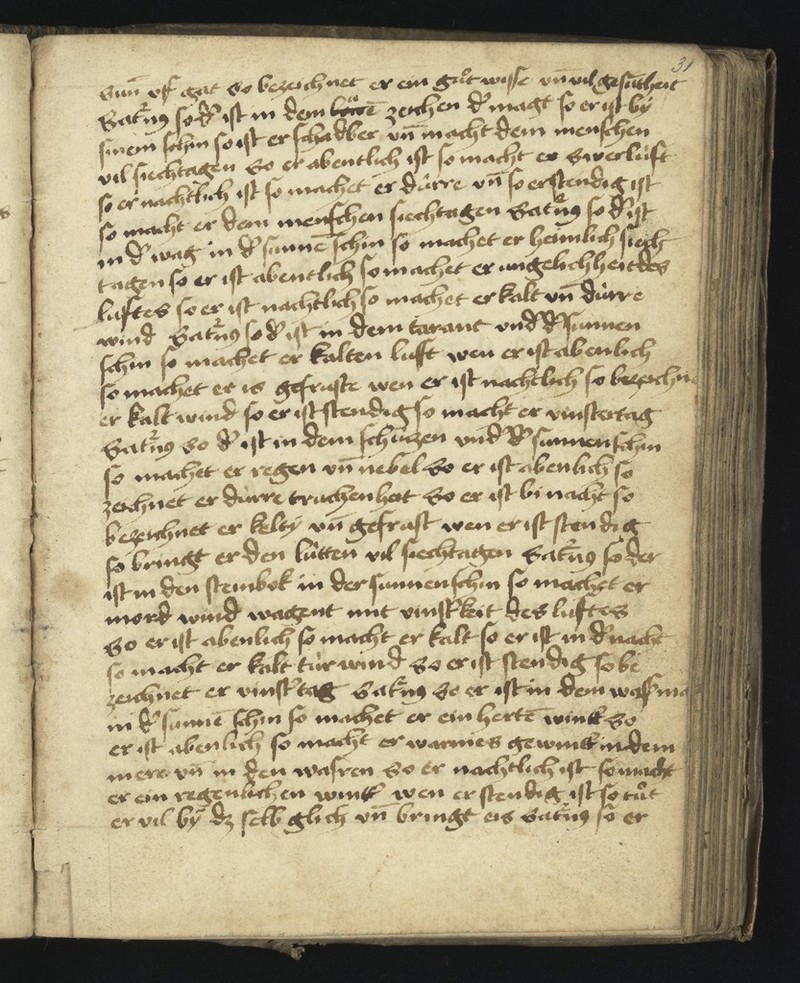 31
Sun̄ vff gat So bezeichnet er ein gůt wisse vn̄ vil gesūtheit
Satn͛9 so d͛ ist in dem zeichen d͛ magt so er ist by
sinem schin so ist er schadber vn̄ macht dem menschen
vil siechtagen So er abentlich ist so macht er Swer luft
so er nachtlich ist so machet er dürre vn̄ so er stendig ist
so macht er dem menschen siechtagen Satn͛9 so d͛ ist
in d͛ wag in d͛ sunnē schin so machet er heimlich siech
tagen so er ist abentlich so machet er ungelichheit des
luftes so er ist nachtlich so machet er kalt vn̄ dürre
wind Satn͛9 so d͛ ist in dem tarant vnd͛ d͛ sunnen
schin so machet er kalten luft wen er ist abenlich
so machet er is gefruste wen er ist nachtlich so bezeichne
er kalt wind so er ist stendig so macht er vinstertag
Satn͛9 So d͛ ist in dem schützen vnd͛ d͛ sunnen schin
so machet er regen vn̄ nebel So er ist abenlich so
zeichnet er dürre truchenheit So er ist bi nacht so
bezeichnet er kelty vn̄ gefrust wen er ist stendig
so bringt er den lütten vil siechtagen Satn͛9 so der
ist in den steinbok in der sunnen schin so machet er
mord wind wagent mit vinst͛keit des luftes
So er ist abenlich so macht er kalt so er ist in d͛ nacht
so macht er kalt túr wind So er ist stendig so be
zeichnet er vinst͛tag Satn͛9 So er ist in dem wass͛ma
in d͛ sunnē schin so machet er ein hertē wint͛ So
er ist abenlich so macht er warmes gewint͛ in dem
mere vn̄ in den wasren So er nachtlich ist so macht
er ein regenlichen wint͛ wen er stendig ist so tůt
er vil by dz selb glich vn̄ bringt eis Satn͛9 so er